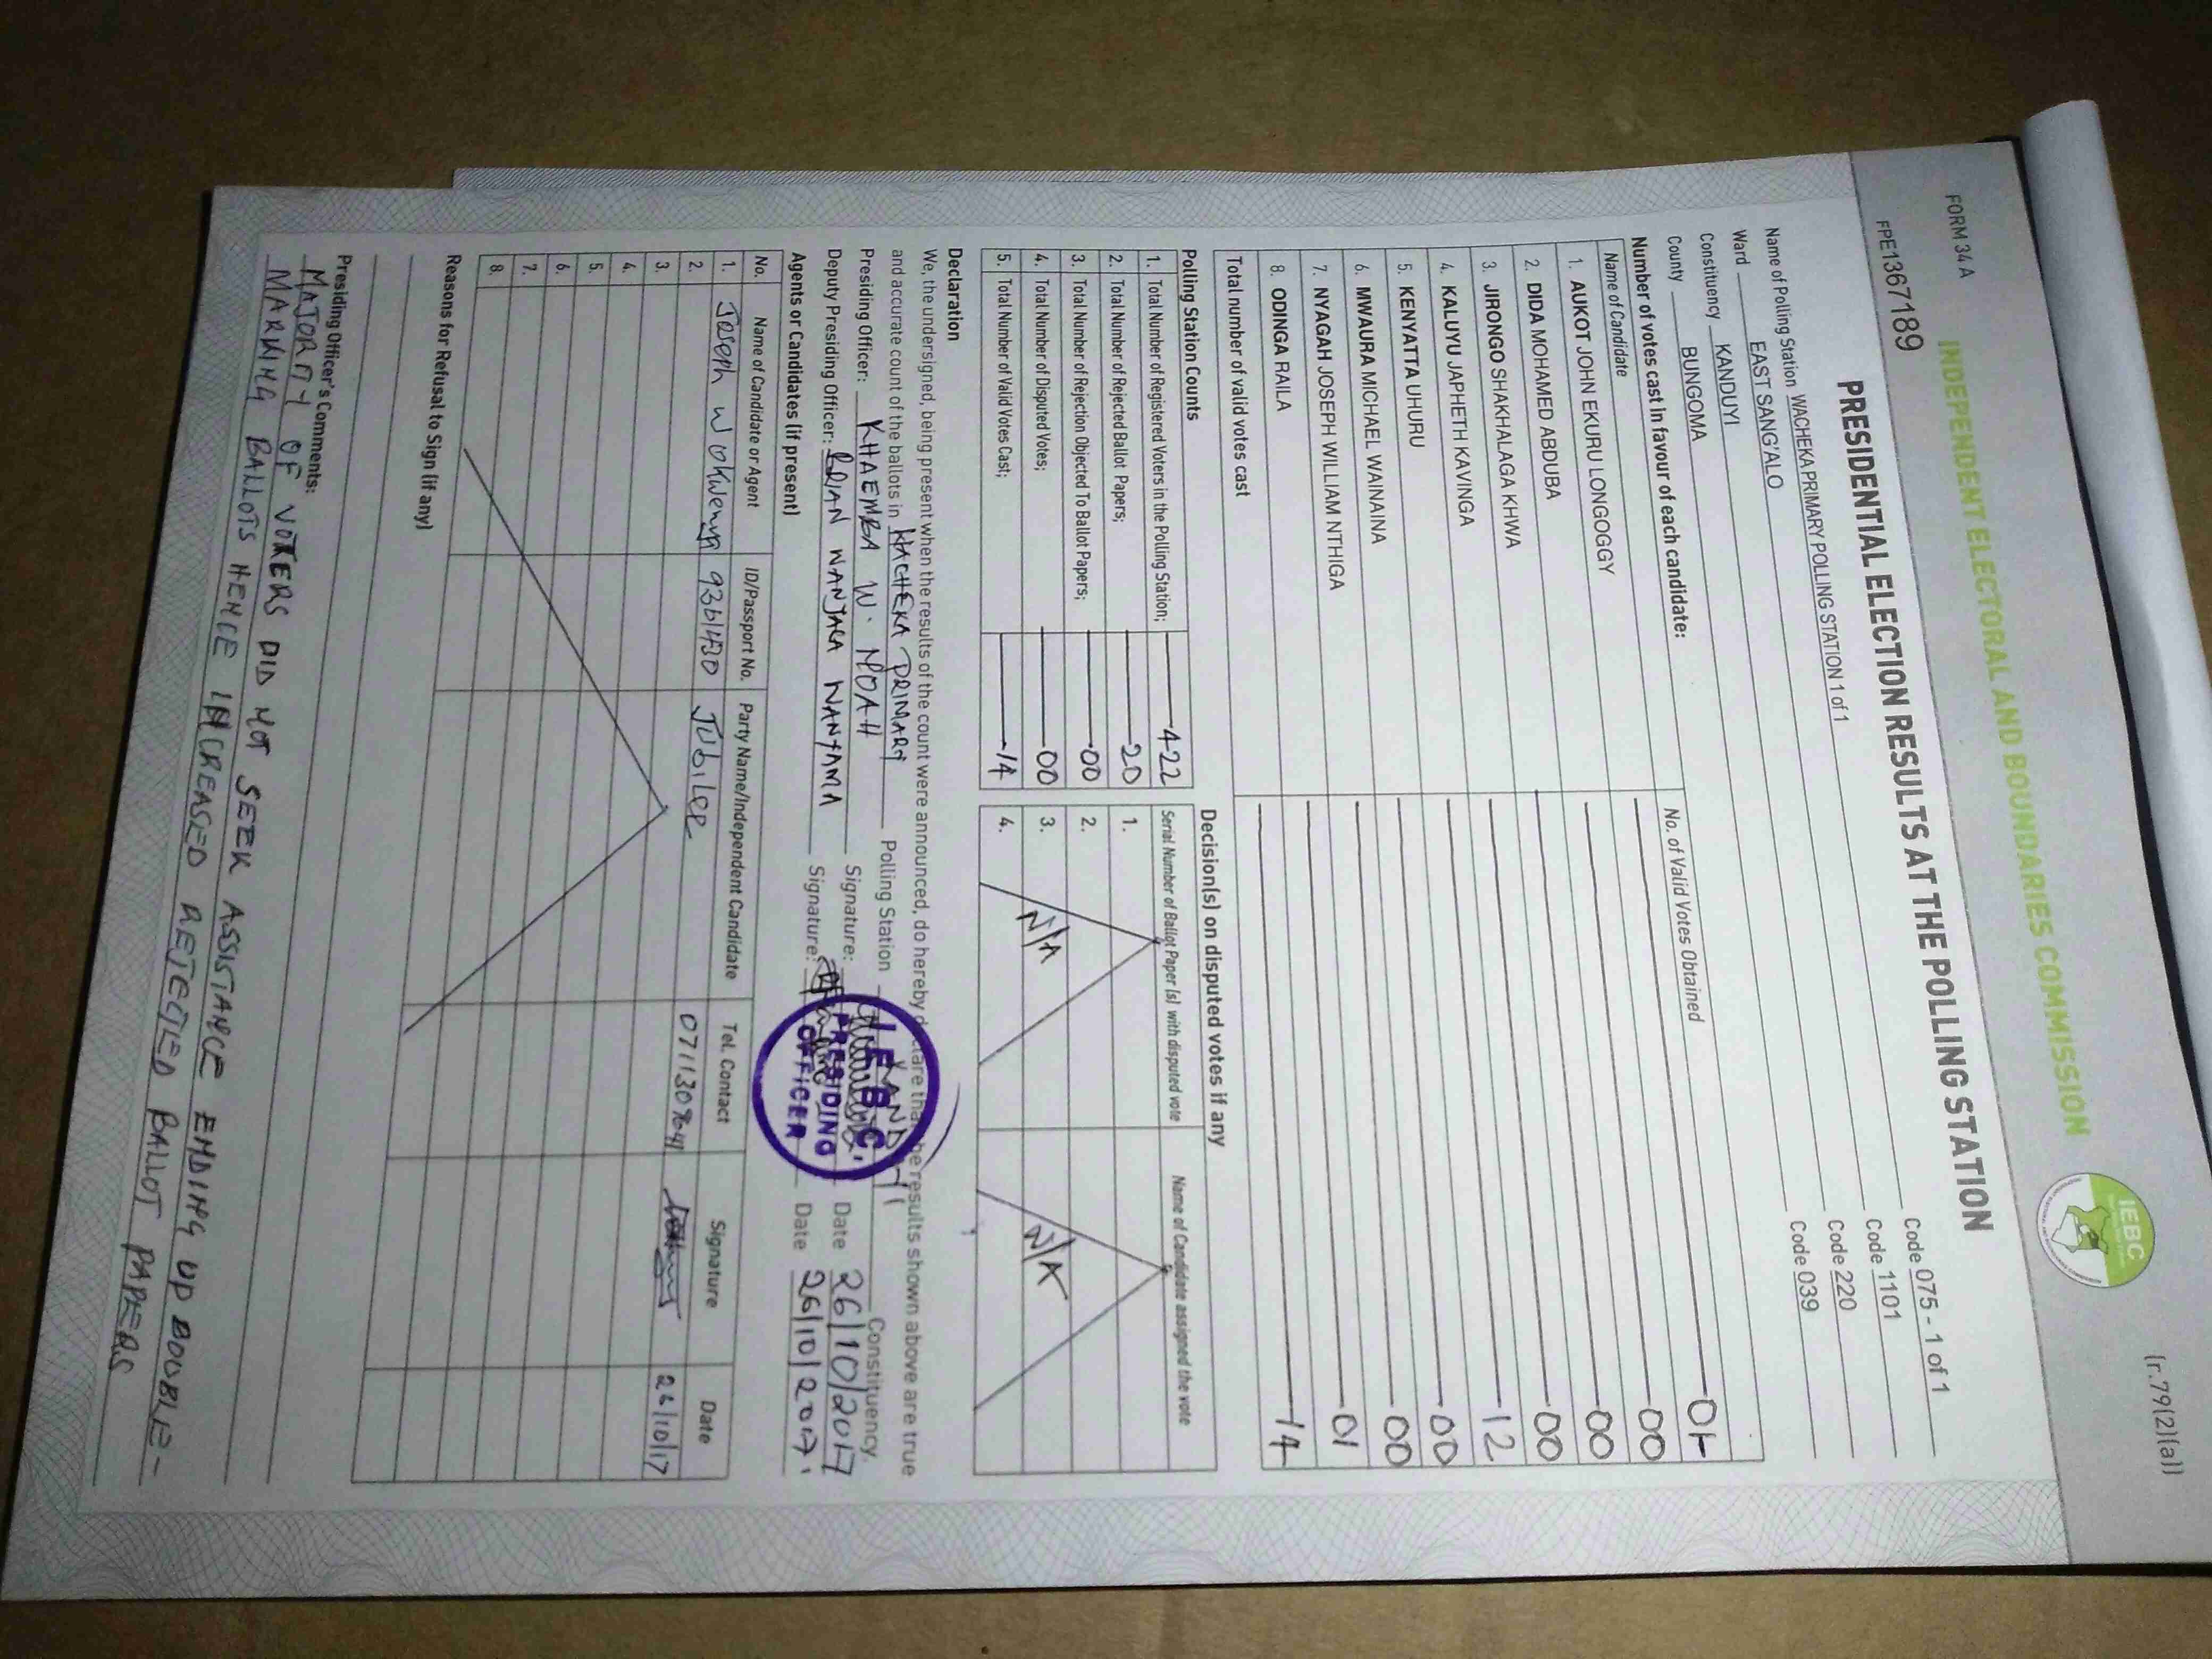 (r.79(2)(a))
FORM 34 A
INDEPENDENT ELECTORAL AND BOUNDARIES COMMISSION
IEBC
FPE1367189
PRESIDENTIAL ELECTION RESULTS AT THE POLLING STATION
Name of Polling Station WACHEKA PRIMARY POLLING STATION 1 of 1 Code 075 - 1 of 1
Ward EAST SANG'ALO Code 1101
Constituency KANDUYI Code 220
County BUNGOMA Code 039
Number of votes cast in favour of each candidate:
Name of Candidate No. of Valid Votes Obtained
1. AUKOT JOHN EKURU LONGOGGY 01
2. DIDA MOHAMED ABDUBA 00
3. JIRONGO SHAKHALAGA KHWA 00
4. KALUYU JAPHETH KAVINGA 00
5. KENYATTA UHURU 12
6. MWAURA MICHAEL WAINAINA 00
7. NYAGAH JOSEPH WILLIAM NTHIGA 00
8. ODINGA RAILA 01
Total number of valid votes cast 14
Polling Station Counts
1. Total Number of Registered Voters in the Polling Station; 422
2. Total Number of Rejected Ballot Papers; 20
3. Total Number of Rejection Objected To Ballot Papers; 00
4. Total Number of Disputed Votes; 00
5. Total Number of Valid Votes Cast; 14
Decision(s) on disputed votes if any
Serial Number of Ballot Paper (s) with disputed vote Name of Candidate assigned the vote
1.
2.
3. N/A N/A
4.
Declaration
We, the undersigned, being present when the results of the count were announced, do hereby declare that the results shown above are true
and accurate count of the ballots in WACHEKA PRIMARY Polling Station KANDUYI Constituency.
Presiding Officer: KHAEMBA W. NOAH Signature: Date 26/10/2017
Deputy Presiding Officer: WANJALA WANYAMA Signature: Date 26/10/2017.
IEBC
PRESIDING
OFFICER
Agents or Candidates (if present)
No. Name of Candidate or Agent ID/Passport No. Party Name/Independent Candidate Tel. Contact Signature Date
1. Joseph Jubilee 26/10/17
2.
3.
4.
5.
6.
7.
8.
Reasons for Refusal to Sign (if any)
Presiding Officer's Comments:
MAJORITY OF VOTERS DID NOT SEEK ASSISTANCE ENDING UP DOUBLE-
MARKING BALLOTS HENCE INCREASED REJECTED BALLOT PAPERS